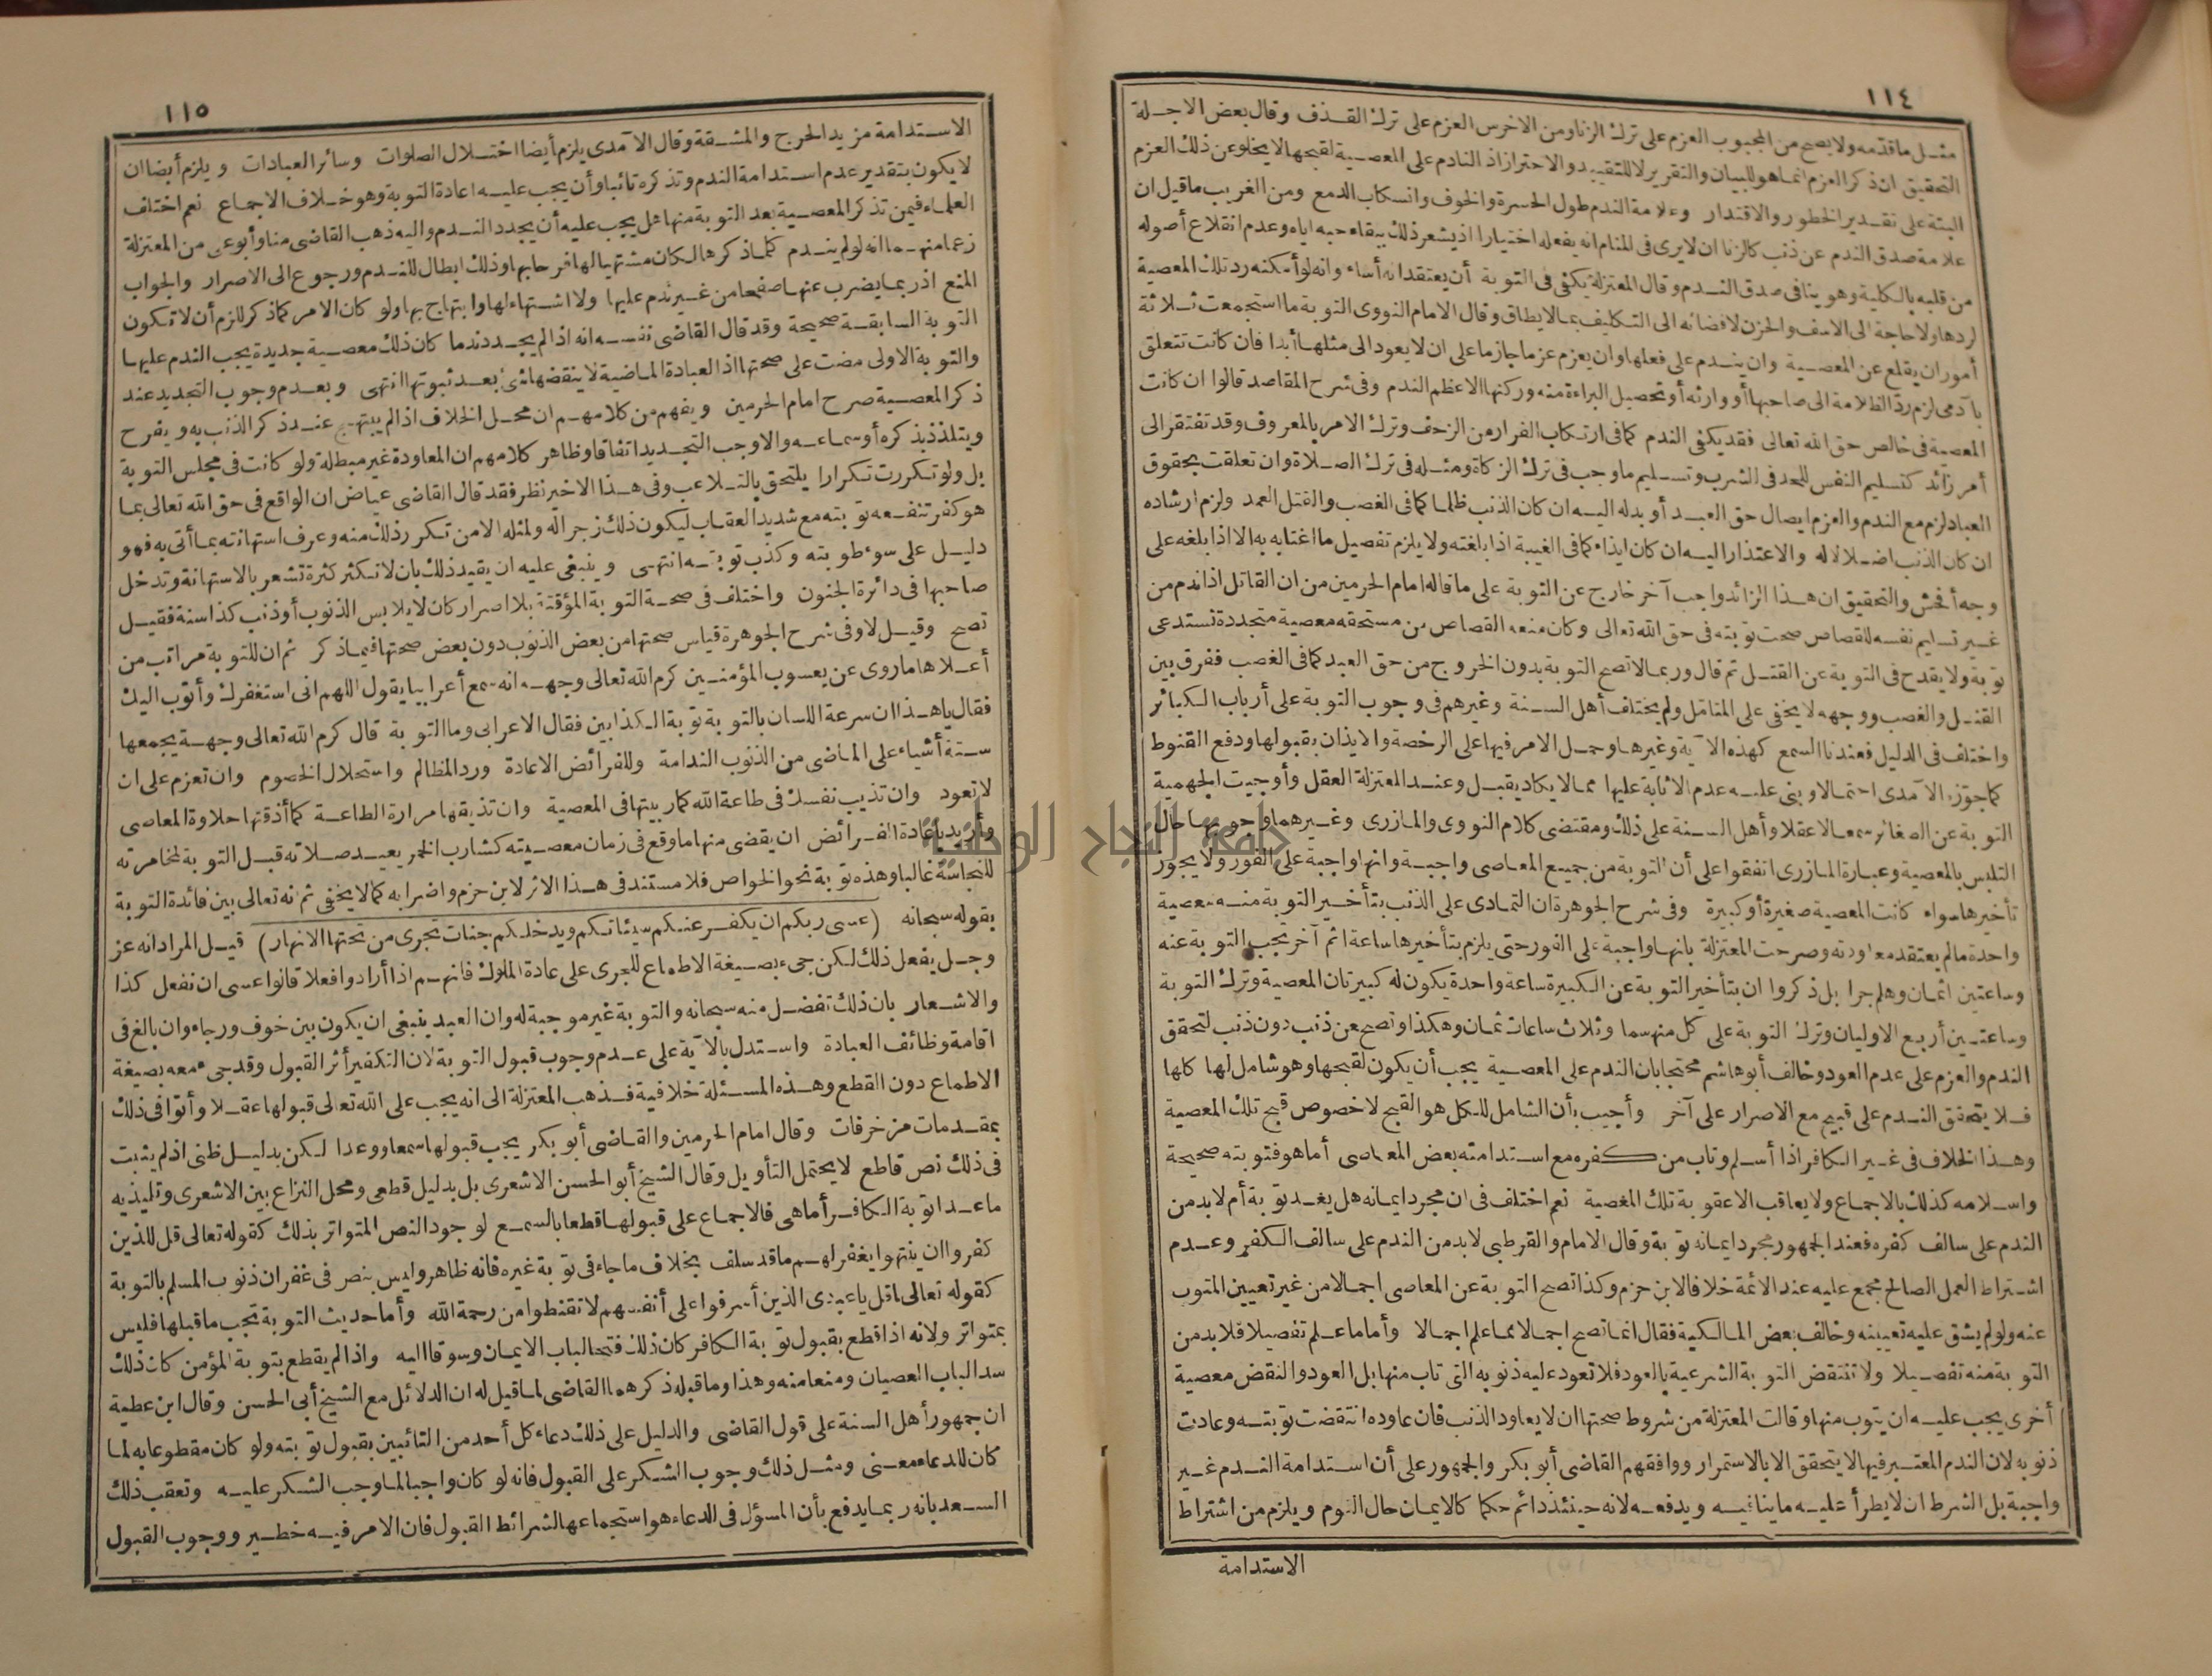 ١١٤
مثل ما قدمه ولا يصح من المجبوب العزم على ترك الزنا ومن الاخرس العزم على ترك القذف وقال بعض الاجلة
التحقيق ان ذكر العزم انما هو للبيان والتقرير لا للتقييد والاحتراز اذ النادم على المعصية لقبحها لا يخلو عن ذلك العزم
البتة على تقدير الخطور والاقتدار وعلامة الندم طول الحسرة والخوف وانسكاب الدمع ومن الغريب ما قيل ان
علامة صدق الندم عن ذنب كالزنا ان لا يرى في المنام انه يفعله اختيارا اذ يشعر ذلك ببقاء حبه اياه وعدم انقلاع أصوله
من قلبه بالكلية وهو ينافى صدق الندم وقال المعتزلة يكفى فى التوبة أن يعتقد انه أساء وانه لو أمكنه رد تلك المعصية
لردها ولا حاجة الى الاسف والحزن لافضائه الى التكليف بما لا يطاق وقال الامام النووى التوبة ما استجمعت ثلاثة
أمور ان يقلع عن المعصية وان يندم على فعلها وان يعزم عزما جازما على ان لا يعود الى مثلها أبدا فان كانت تتعلق
بآدمى لزم رد الظلامة الى صاحبها أو وارثه أو تحصيل البراءة منه وركنها الاعظم الندم وفى شرح المقاصد قالوا ان كانت
المعصية فى خالص حق الله تعالى فقد يكفى الندم كما فى ارتكاب الفرار من الزحف وترك الامر بالمعروف وقد تفتقر الى
أمر زائد كتسليم النفس للحد فى الشرب وتسليم ما وجب فى ترك الزكاة ومثله فى ترك الصلاة وان تعلقت بحقوق
العباد لزم مع الندم والعزم ايصال حق العبد أو بدله اليه ان كان الذنب ظلما كما فى الغصب والقتل العمد ولزم ارشاده
ان كان الذنب اضلالا له والاعتذار اليه ان كان ايذاء كما فى الغيبة اذا بلغته ولا يلزم تفصيل ما اغتابه به الا اذا بلغه على
وجه أفحش والتحقيق ان هذا الزائد واجب آخر خارج عن التوبة على ما قاله امام الحرمين من ان القاتل اذا ندم من
غير تسليم نفسه للقصاص صحت توبته فى حق الله تعالى وكان منعه القصاص من مستحقه معصية متجددة تستدعى
توبة ولا يقدح فى التوبة عن القتل ثم قال وربما لا تصح التوبة بدون الخروج من حق العبد كما فى الغصب ففرق بين
القتل والغصب ووجهه لا يخفى على المتأمل ولم يختلف أهل السنة وغيرهم فى وجوب التوبة على أرباب الكبائر
واختلف فى الدليل فعندنا السمع كهذه الآية وغيرها وحمل الامر فيها على الرخصة والايذان بقبولها ودفع القنوط
كما جوزه الآمدى احتمالا وبنى عليه عدم الاثابة عليها مما لا يكاد يقبل وعند المعتزلة العقل وأوجبت الجهمية
التوبة عن الصغائر سمعا لا عقلا وأهل السنة على ذلك ومقتضى كلام النووى والمازرى وغيرهما وجوبها حال
التلبس بالمعصية وعبارة المازرى اتفقوا على أن التوبة من جميع المعاصى واجبة وانها واجبة على الفور ولا يجوز
تأخيرها سواء كانت المعصية صغيرة أو كبيرة وفى شرح الجوهرة ان التمادى على الذنب بتأخير التوبة منه معصية
واحدة ما لم يعتقد معاودته وصرحت المعتزلة بانها واجبة على الفور حتى يلزم بتأخيرها ساعة اثم آخر تجب التوبة عنه
وساعتين اثمان وهلم جرا بل ذكروا ان بتأخير التوبة عن الكبيرة ساعة واحدة يكون له كبيرتان المعصية وترك التوبة
وساعتين أربع الاوليان وترك التوبة على كل منهما وثلاث ساعات ثمان وهكذا وتصح عن ذنب دون ذنب لتحقق
الندم والعزم على عدم العود وخالف أبو هاشم محتجا بان الندم على المعصية يجب أن يكون لقبحها وهو شامل لها كلها
فلا يتحقق الندم على قبيح مع الاصرار على آخر وأجيب بأن الشامل للكل هو القبح لا خصوص قبح تلك المعصية
وهذا الخلاف فى غير الكافر اذا أسلم وتاب من كفره مع استدامته بعض المعاصى أما هو فتوبته صحيحة
واسلامه كذلك بالاجماع ولا يعاقب الا عقوبة تلك المعصية نعم اختلف فى ان مجرد ايمانه هل يعد توبة أم لا بد من
الندم على سالف كفره فعند الجمهور مجرد ايمانه توبة وقال الامام والقرطبى لا بد من الندم على سالف الكفر وعدم
اشتراط العمل الصالح مجمع عليه عند الائمة خلافا لابن حزم وكذا تصح التوبة عن المعاصى اجمالا من غير تعيين المتوب
عنه ولو لم يشق عليه تعيينه وخالف بعض المالكية فقال انما تصح اجمالا مما علم اجمالا وأما ما علم تفصيلا فلا بد من
التوبة منه تفصيلا ولا تنتقض التوبة الشرعية بالعود فلا تعود عليه ذنوبه التى تاب منها بل العود والنقض معصية
أخرى يجب عليه ان يتوب منها وقالت المعتزلة من شروط صحتها ان لا يعاود الذنب فان عاوده انتقضت توبته وعادت
ذنوبه لان الندم المعتبر فيها لا يتحقق الا بالاستمرار ووافقهم القاضى أبو بكر والجمهور على أن استدامة الندم غير
واجبة بل الشرط ان لا يطرأ عليه ما ينافيه ويدفعه لانه حينئذ دائم حكما كالايمان حال النوم ويلزم من اشتراط
الاستدامة
١١٥
الاستدامة مزيد الحرج والمشقة وقال الآمدى يلزم أيضا اختلال الصلوات وسائر العبادات ويلزم أيضا ان
لا يكون بتقدير عدم استدامة الندم وتذكره تائبا وأن يجب عليه اعادة التوبة وهو خلاف الاجماع نعم اختلف
العلماء فيمن تذكر المعصية بعد التوبة منها هل يجب عليه أن يجدد الندم واليه ذهب القاضى منا وأبو على من المعتزلة
زعما منهما انه لو لم يندم كلما ذكرها لكان مشتهيا لها فرحا بها وذلك ابطال للندم ورجوع الى الاصرار والجواب
المنع اذ ربما يضرب عنها صفحا من غير ندم عليها ولا اشتهاء لها وابتهاج بها ولو كان الامر كما ذكر للزم أن لا تكون
التوبة السابقة صحيحة وقد قال القاضى نفسه انه اذا لم يجدد ندما كان ذلك معصية جديدة يجب الندم عليها
والتوبة الاولى مضت على صحتها اذ العبادة الماضية لا ينقضها شئ بعد ثبوتها انتهى وبعدم وجوب التجديد عند
ذكر المعصية صرح امام الحرمين ويفهم من كلامهم ان محل الخلاف اذا لم يبتهج عند ذكر الذنب به ويفرح
ويتلذذ بذكره أو سماعه والا وجب التجديد اتفاقا وظاهر كلامهم ان المعاودة غير مبطلة ولو كانت فى مجلس التوبة
بل ولو تكررت تكرارا يلتحق بالتلاعب وفى هذا الاخير نظر فقد قال القاضى عياض ان الواقع فى حق الله تعالى بما
هو كفر تنفعه توبته مع شديد العقاب ليكون ذلك زجرا له ولمثله الا من تكرر ذلك منه وعرف استهانته بما أتى به فهو
دليل على سوء طويته وكذب توبته انتهى وينبغى عليه ان يقيد ذلك بان لا تكثر كثرة تشعر بالاستهانة وتدخل
صاحبها فى دائرة الجنون واختلف فى صحة التوبة المؤقتة بلا اصرار كان لا يلابس الذنوب أو ذنب كذا سنة فقيل
تصح وقيل لا وفى شرح الجوهرة قياس صحتها من بعض الذنوب دون بعض صحتها فيما ذكر ثم ان للتوبة مراتب من
أعلاها ما روى عن يعسوب المؤمنين كرم الله تعالى وجهه انه سمع أعرابيا يقول اللهم انى استغفرك وأتوب اليك
فقال يا هذا ان سرعة اللسان بالتوبة توبة الكذابين فقال الاعرابى وما التوبة قال كرم الله تعالى وجهه يجمعها
ستة أشياء على الماضى من الذنوب الندامة وللفرائض الاعادة ورد المظالم واستحلال الخصوم وان تعزم على ان
لا تعود وان تذيب نفسك فى طاعة الله كما ربيتها فى المعصية وان تذيقها مرارة الطاعة كما أذقتها حلاوة المعاصى
وأريد باعادة الفرائض ان يقضى منها ما وقع فى زمان معصيته كشارب الخمر يعيد صلاته قبل التوبة لمخامرته
للنجاسة غالبا وهذه توبة نحو الخواص فلا مستند فى هذا الاثر لابن حزم واضرابه كما لا يخفى ثم انه تعالى بين فائدة التوبة
بقوله سبحانه (عسى ربكم ان يكفر عنكم سيئاتكم ويدخلكم جنات تجرى من تحتها الانهار) قيل المراد انه عز
وجل يفعل ذلك لكن جىء بصيغة الاطماع للجرى على عادة الملوك فانهم اذا أرادوا فعلا قالوا عسى ان نفعل كذا
والاشعار بان ذلك تفضل منه سبحانه والتوبة غير موجبة له وان العبد ينبغى ان يكون بين خوف ورجاء وان بالغ فى
اقامة وظائف العبادة واستدل بالآية على عدم وجوب قبول التوبة لان التكفير أثر القبول وقد جىء معه بصيغة
الاطماع دون القطع وهذه المسئلة خلافية فذهب المعتزلة الى انه يجب على الله تعالى قبولها عقلا وأتوا فى ذلك
بمقدمات مزخرفات وقال امام الحرمين والقاضى أبو بكر يجب قبولها سمعا ووعدا لكن بدليل ظنى اذ لم يثبت
فى ذلك نص قاطع لا يحتمل التأويل وقال الشيخ أبو الحسن الاشعرى بل بدليل قطعى ومحل النزاع بين الاشعرى وتلميذيه
ما عدا توبة الكافر أما هى فالاجماع على قبولها قطعا بالسمع لوجود النص المتواتر بذلك كقوله تعالى قل للذين
كفروا ان ينتهوا يغفر لهم ما قد سلف بخلاف ما جاء فى توبة غيره فانه ظاهر وليس بنص فى غفران ذنوب المسلم بالتوبة
كقوله تعالى قل يا عبادى الذين أسرفوا على أنفسهم لا تقنطوا من رحمة الله وأما حديث التوبة تجب ما قبلها فليس
بمتواتر ولانه اذا قطع بقبول توبة الكافر كان ذلك فتحا لباب الايمان وسوقا اليه واذا لم يقطع بتوبة المؤمن كان ذلك
سدا لباب العصيان ومنعا منه وهذا وما قبله ذكرهما القاضى لما قيل له ان الدلائل مع الشيخ أبى الحسن وقال ابن عطية
ان جمهور أهل السنة على قول القاضى والدليل على ذلك دعاء كل أحد من التائبين بقبول توبته ولو كان مقطوعا به لما
كان للدعاء معنى ومثل ذلك وجوب الشكر على القبول فانه لو كان واجبا لما وجب الشكر عليه وتعقب ذلك
السعد بانه ربما يدفع بأن المسؤل فى الدعاء هو استجماعها لشرائط القبول فان الامر فيه خطير ووجوب القبول
جامعة النجاح الوطنية